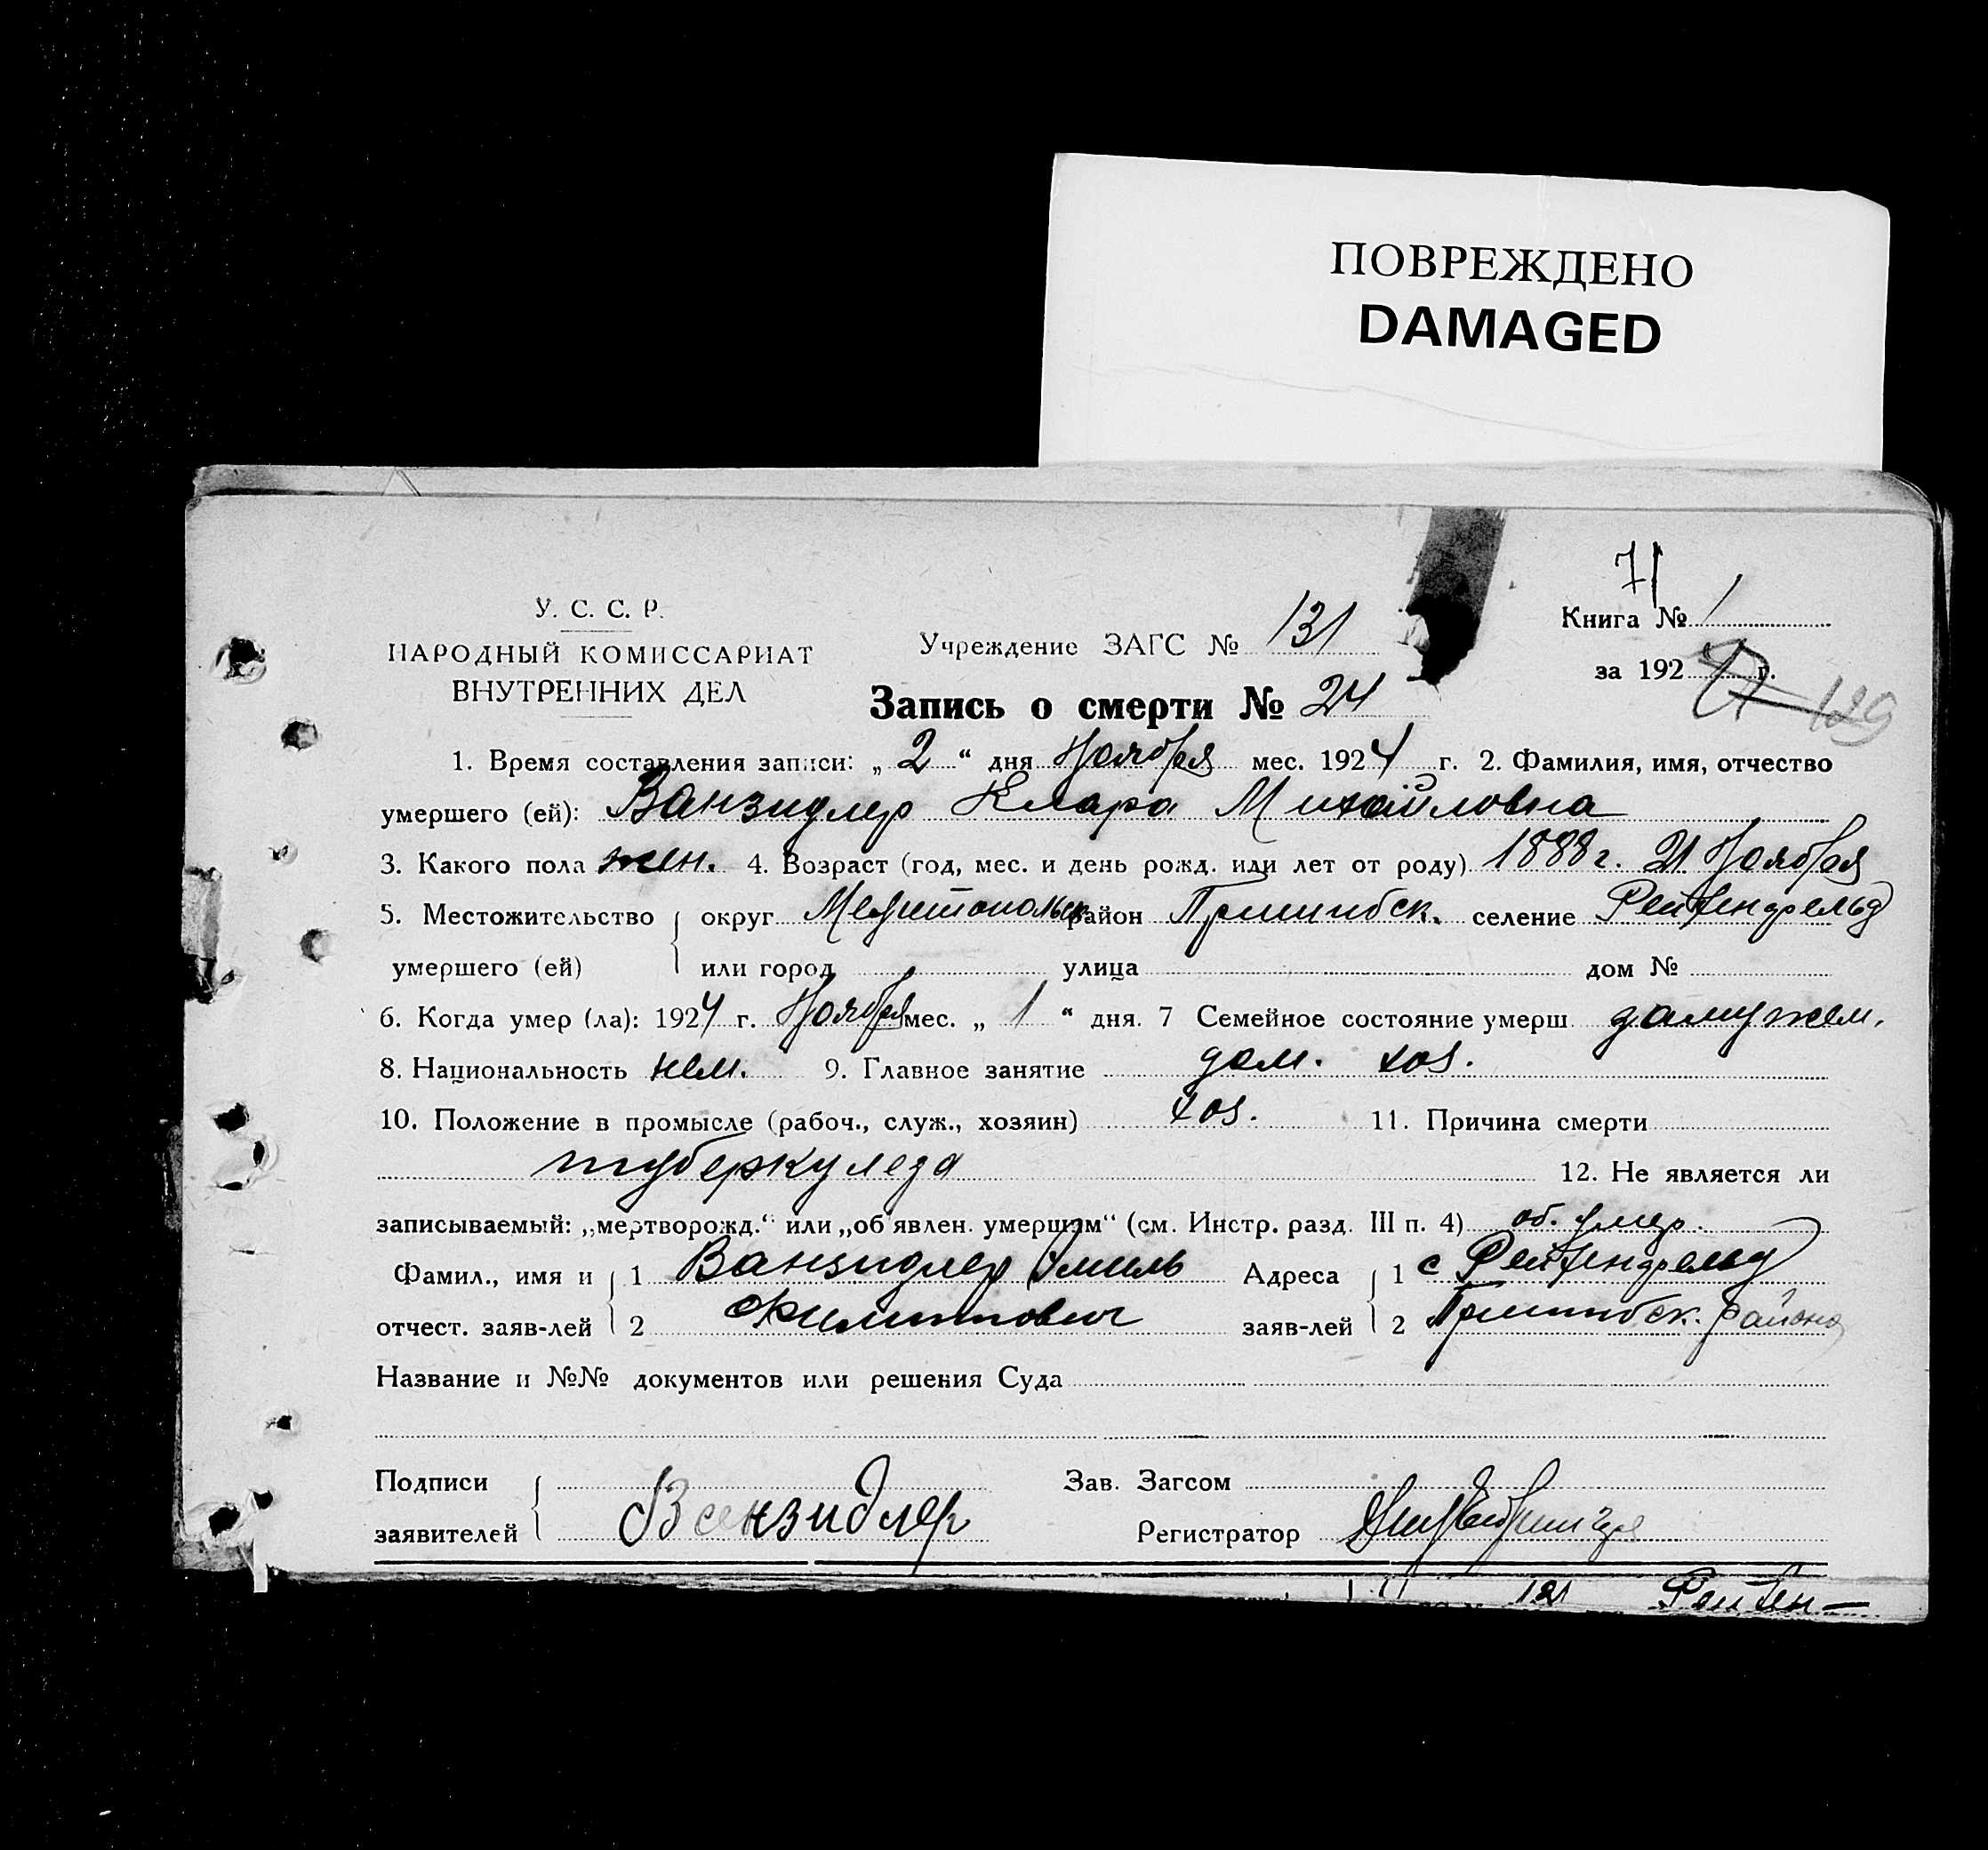 ПОВРЕЖДЕНО
DAMAGED
71
У. С. С. Р.
НАРОДНЫЙ КОМИССАРИАТ
ВНУТРЕННИХ ДЕЛ
Учреждение ЗАГС № 131
Книга № 1
за 192 г.
129
Запись о смерти № 24
1. Время составления записи: „ 2 “ дня Ноября мес. 1924 г. 2. Фамилия, имя, отчество
умершего (ей): Ванзидлер Клара Михайловна
3. Какого пола жен. 4. Возраст (год, мес. и день рожд. или лет от роду) 1888 г. 21 Ноября
5. Местожительство округ Мелитопольск район Пришибск. селение Рейхенфельд
умершего (ей) или город улица дом №
6. Когда умер (ла): 1924 г. Ноября мес. „ 1 “ дня. 7 Семейное состояние умерш. замужем.
8. Национальность нем. 9. Главное занятие дом. хоз.
10. Положение в промысле (рабоч., служ., хозяин) хоз. 11. Причина смерти
туберкулеза 12. Не является ли
записываемый: „мертворожд.“ или „об'явлен. умершим“ (см. Инстр. разд. III п. 4) об. умер.
Фамил., имя и 1 Ванзидлер Эмиль Адреса 1 с Рейхенфельд
отчест. заяв-лей 2 Филиппович заяв-лей 2 Пришибск. района
Название и №№ документов или решения Суда
Подписи Зав. Загсом
заявителей Ванзидлер Регистратор
121 Рейхен-